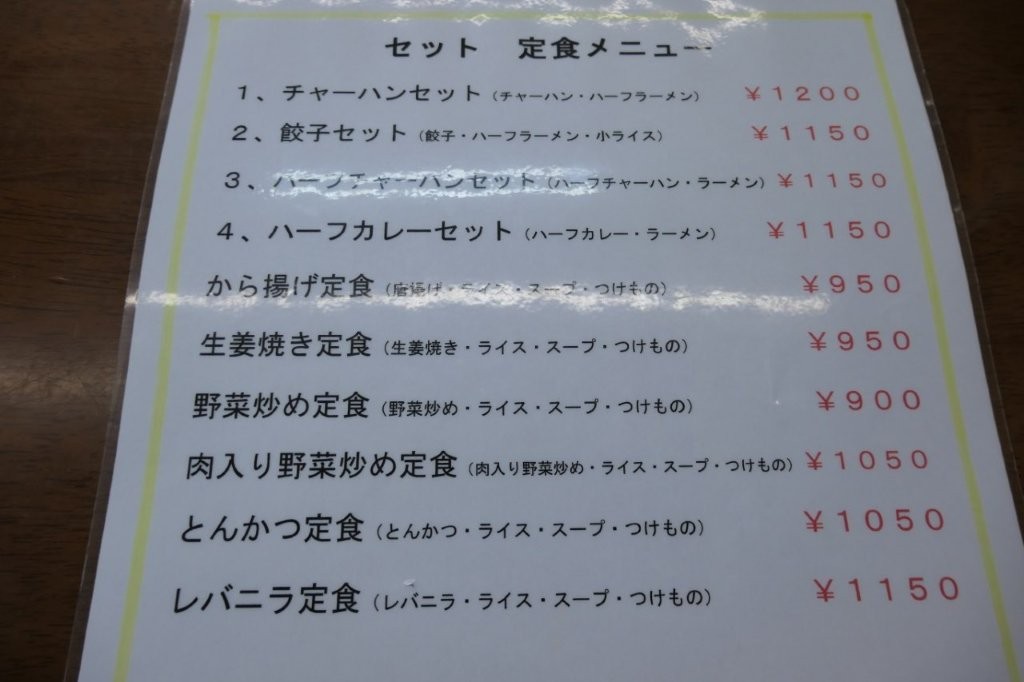 セット　定食メニュー
１、チャーハンセット（チャーハン・ハーフラーメン）　￥１２００
２、餃子セット（餃子・ハーフラーメン・小ライス）　￥１１５０
３、ハーフチャーハンセット（ハーフチャーハン・ラーメン）￥１１５０
４、ハーフカレーセット（ハーフカレー・ラーメン）　￥１１５０
から揚げ定食（唐揚げ・ライス・スープ・つけもの）　￥９５０
生姜焼き定食（生姜焼き・ライス・スープ・つけもの）　￥９５０
野菜炒め定食（野菜炒め・ライス・スープ・つけもの）　￥９００
肉入り野菜炒め定食（肉入り野菜炒め・ライス・スープ・つけもの）￥１０５０
とんかつ定食（とんかつ・ライス・スープ・つけもの）　￥１０５０
レバニラ定食（レバニラ・ライス・スープ・つけもの）　￥１１５０